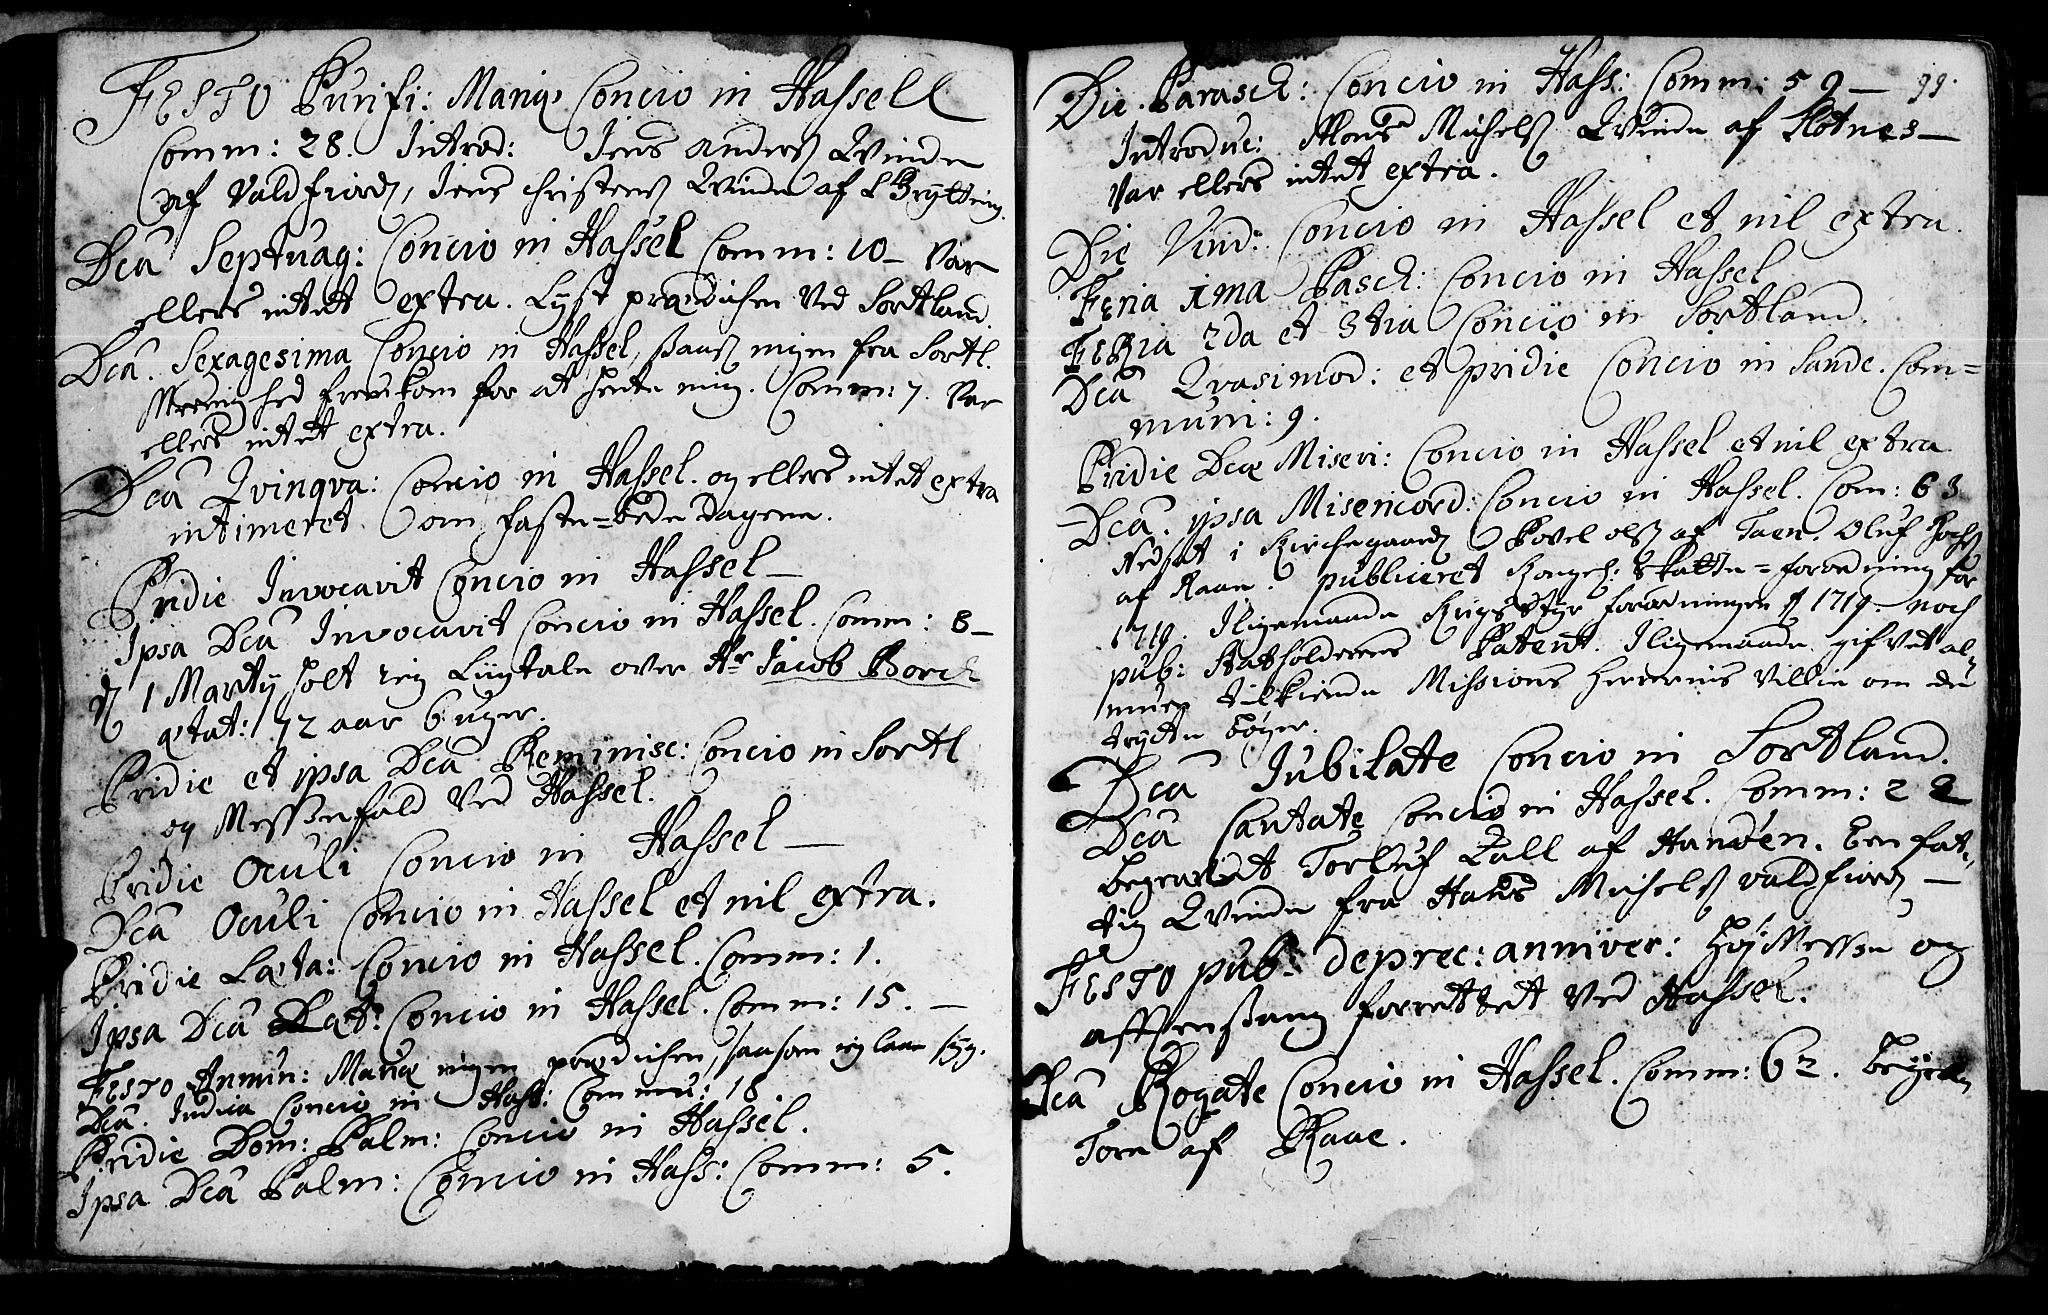 FESTO Purifi: Mariæ Concio in Hassell
Comm: 28. Introd: Jens Anders Qvinde
af Valdfiord, Jens Christens Qvinde af
Dca Septuag: Concio in Hassel Comm: 10 - Var
ellers intet extra. Lyst prædichen ved Sortland.
Dca. Sexagesima Concio in Hassel, saas ingen fra Sortl.
Menighed fremkom for at hente mig. Comm: 7. Var
ellers intet extra.
Dca Qvinqva: Concio in Hassel. og ellers intet extra
intimeret om faste=bede dagene.
Pridie Invocavit Concio in Hassel -
Ipsa Dca Invocavit Concio in Hassel. Comm: 8 -
d 1 Marty holt ieg Liigtale over Hr Jacob Borch
ætat: 72 aar 6 uger.
Pridie et ipsa Dca Reminisc: Concio in Sortl
og Messefald ved Hassel.
Pridie Oculi Concio in Hassel -
Dca Oculi Concio in Hassel et nil extra.
Pridie Læta: Concio in Hassel. Comm: 1.
Ipsa Dca Læt: Concio in Hassel. Comm: 15. -
FESTO Annun: Mariæ ingen prædichen, saasom ieg laae syg.
Dca. Judica Concio in Hass: Commu: 18
Pridie Dom: Palm: Concio in Hassel.
Ipsa Dca Palm: Concio in Hass: Comm: 5.
99.
Die Parasch: Concio in Hass: Comm: 59 -
Introduc: Mons Michels Qvinde af Slotnes -
Var ellers intet extra.
Die Vind: Concio in Hassel et nil extra.
Feria 1ma Pasch: Concio in Hassel
FERia 2da et 3tia Concio in Sortland.
Dca Qvasimod: et pridie Concio in Sande. Com=
muni: 9.
Pridie Dcæ Miseri: Concio in Hassel et nil extra
Dca. ipsa Misericord: Concio in Hassel. Com: 63
Nedsat i Kirchegaard Povel ols af Taen. Oluf
af Raae. publiceret Kongel: Skatte=forordning for
1719. Iligemaade Krigs Styr forordningen d 1719. noch
pub: Statholderens Patent. Iligemaade gifvet al
muen tilkiende Missions Herrernis Villie om de
trycte bøger.
Dca Jubilate Concio in Sortland.
Dca Cantate Concio in Hassel. Comm: 22
begravet Torluf Zall af Handen. Een fat=
tig Qvinde fra Hans Michels valdfiord -
FESTO pub: deprec: anniver: Høj Messe og
afftensang forrettet ved Hassel.
Dca Rogate Concio in Hassel. Comm: 62.
Tore af Raae.